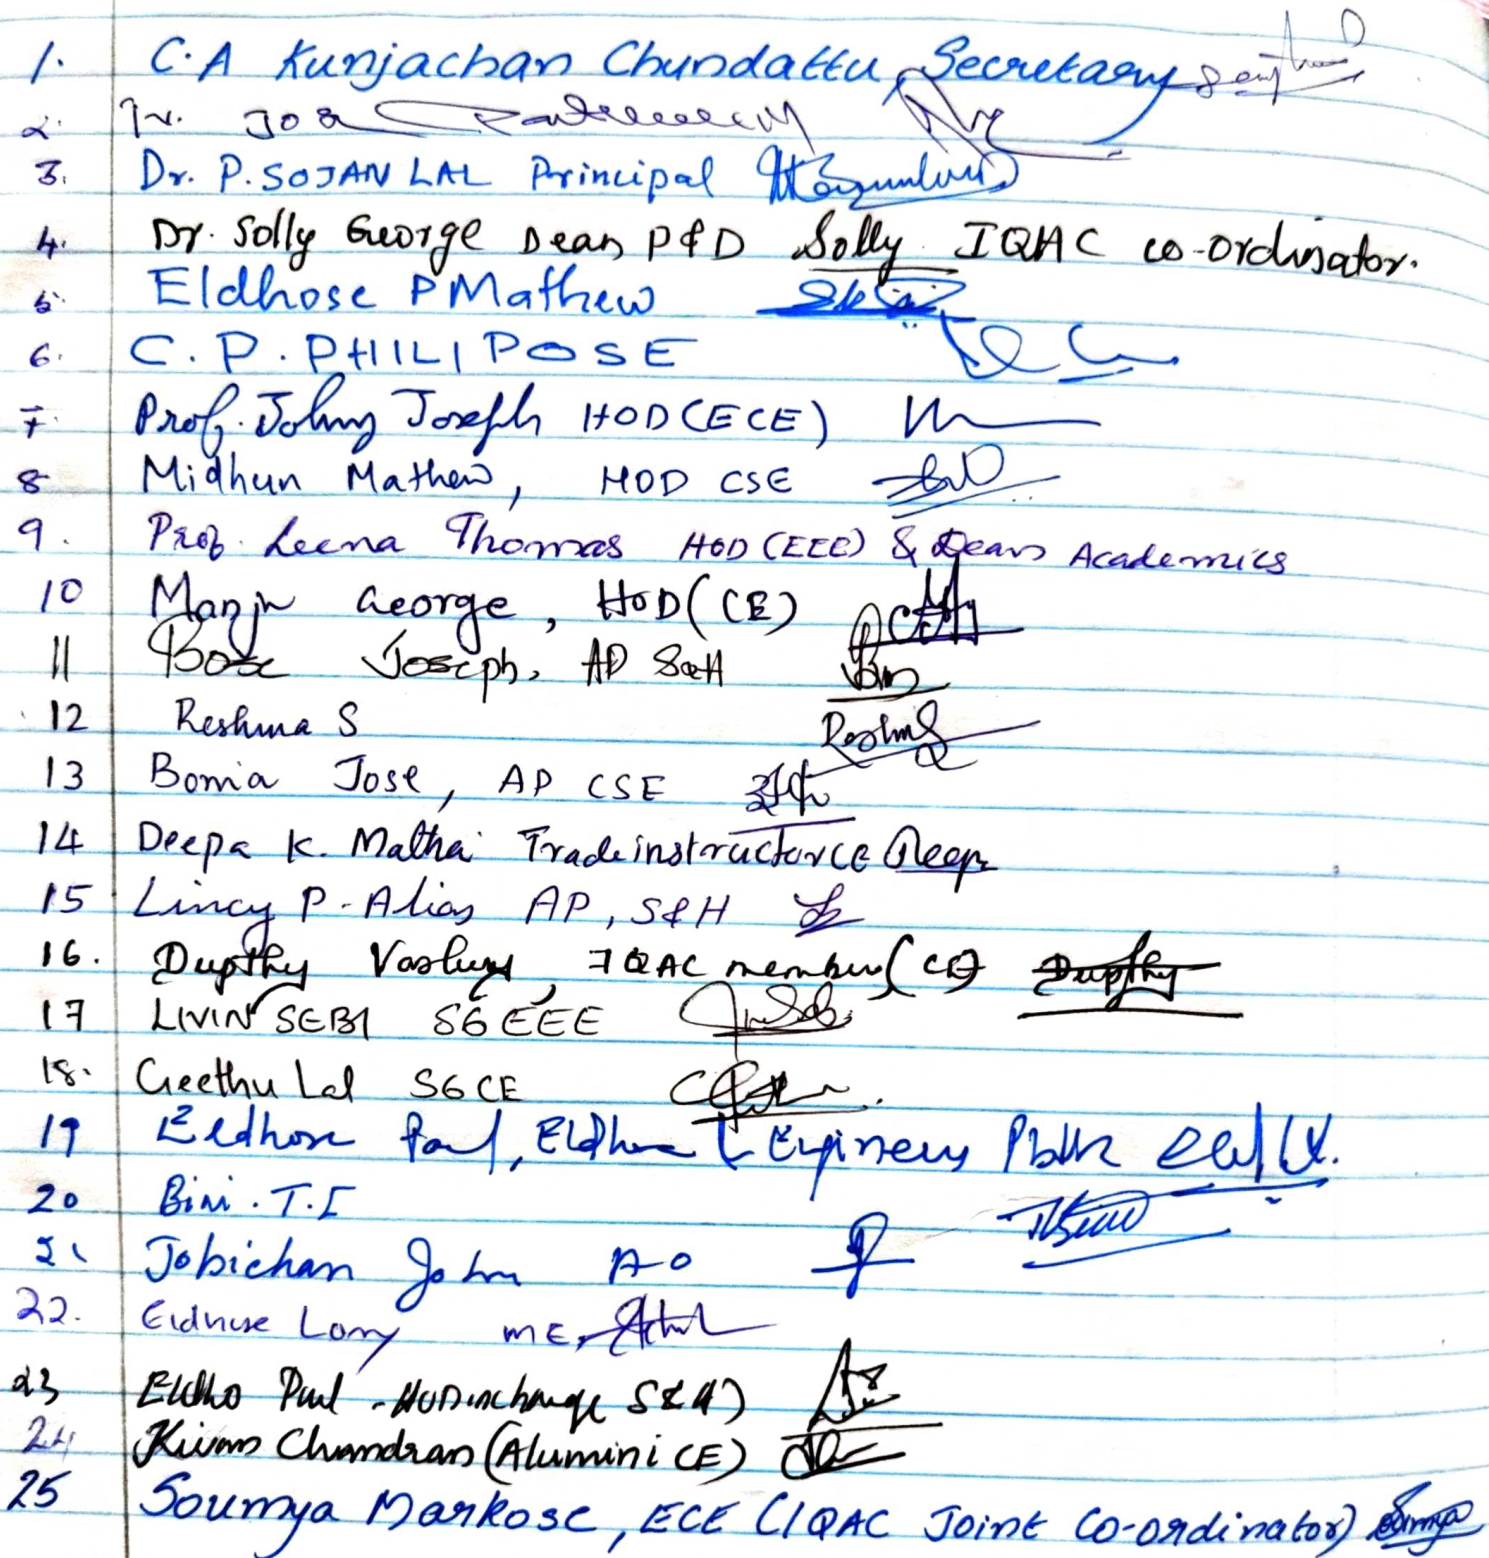 1. C.A Kunjachan Chundattu, Secretary
2. Fr. Jos
3. Dr. P. SOJAN LAL Principal
4. Dr. Solly George Dean P&D Solly IQAC co-ordinator.
5. Eldhose P Mathew
6. C. P. PHILIPOSE
7. Prof. Johny Joseph HOD (ECE)
8 Midhun Mathew, HOD CSE
9. Prof. Leena Thomas HOD (EEE) & Dean Academics
10 Manju George, HOD (CE)
11 Bose Joseph, AP S&H
12 Reshma S
13 Bonia Jose, AP CSE
14 Deepa K. Mathai Trade instructor CE Deepa
15 Lincy P. Alias AP, S&H
16. Dupthy Varkey, IQAC member (CE) Dupthy
17 LIVIN SEBI S6 EEE
18. Geethu Lal S6 CE
19 Eldhose Paul,
20 Bini . T. I
21 Jobichan John AO
22. Eldhose Lony ME
23 Eldho Paul - HOD incharge S&H)
24 Kiran Chandran (Alumini CE)
25 Soumya Markose, ECE (IQAC Joint Co-ordinator) Soumya